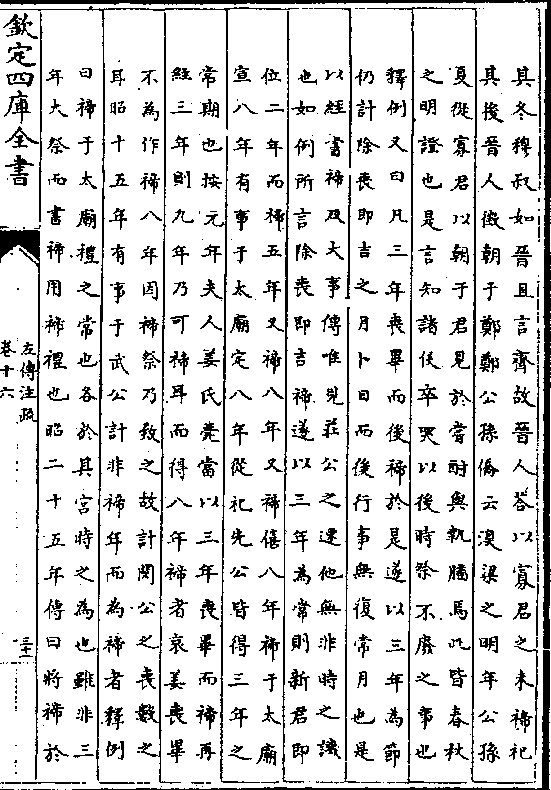 其冬穆叔如晉且言齊故晉人荅以寡君之未禘祀
其後晉人徵朝于鄭鄭公孫僑云溴梁之明年公孫
夏從寡君以朝于君見於嘗酎與執膰焉此皆春秋
之明證也是言知諸侯卒哭以後時祭不廢之事也
釋例又曰凡三年喪畢而後禘於是遂以三年為節
仍計除喪即吉之月卜日而後行事無復常月也是
以經書禘及大事傳唯見莊公之速他無非時之譏
也如例所言除喪即吉禘遂以三年為常則新君即
位二年而禘五年又禘八年又禘僖八年禘于太廟
宣八年有事于太廟定八年從祀先公皆得三年之
常期也按元年夫人姜氏薨當以三年喪畢而禘再
經三年則九年乃可禘耳而得八年禘者哀姜喪畢
不為作禘八年因禘祭乃致之故計閔公之喪數之
耳昭十五年有事于武公計非禘年而為禘者釋例
曰禘于太廟禮之常也各於其宮時之為也雖非三
年大祭而書禘用禘禮也昭二十五年傳曰將禘於
欽定四庫全書
左傳注疏
卷十六
三十一